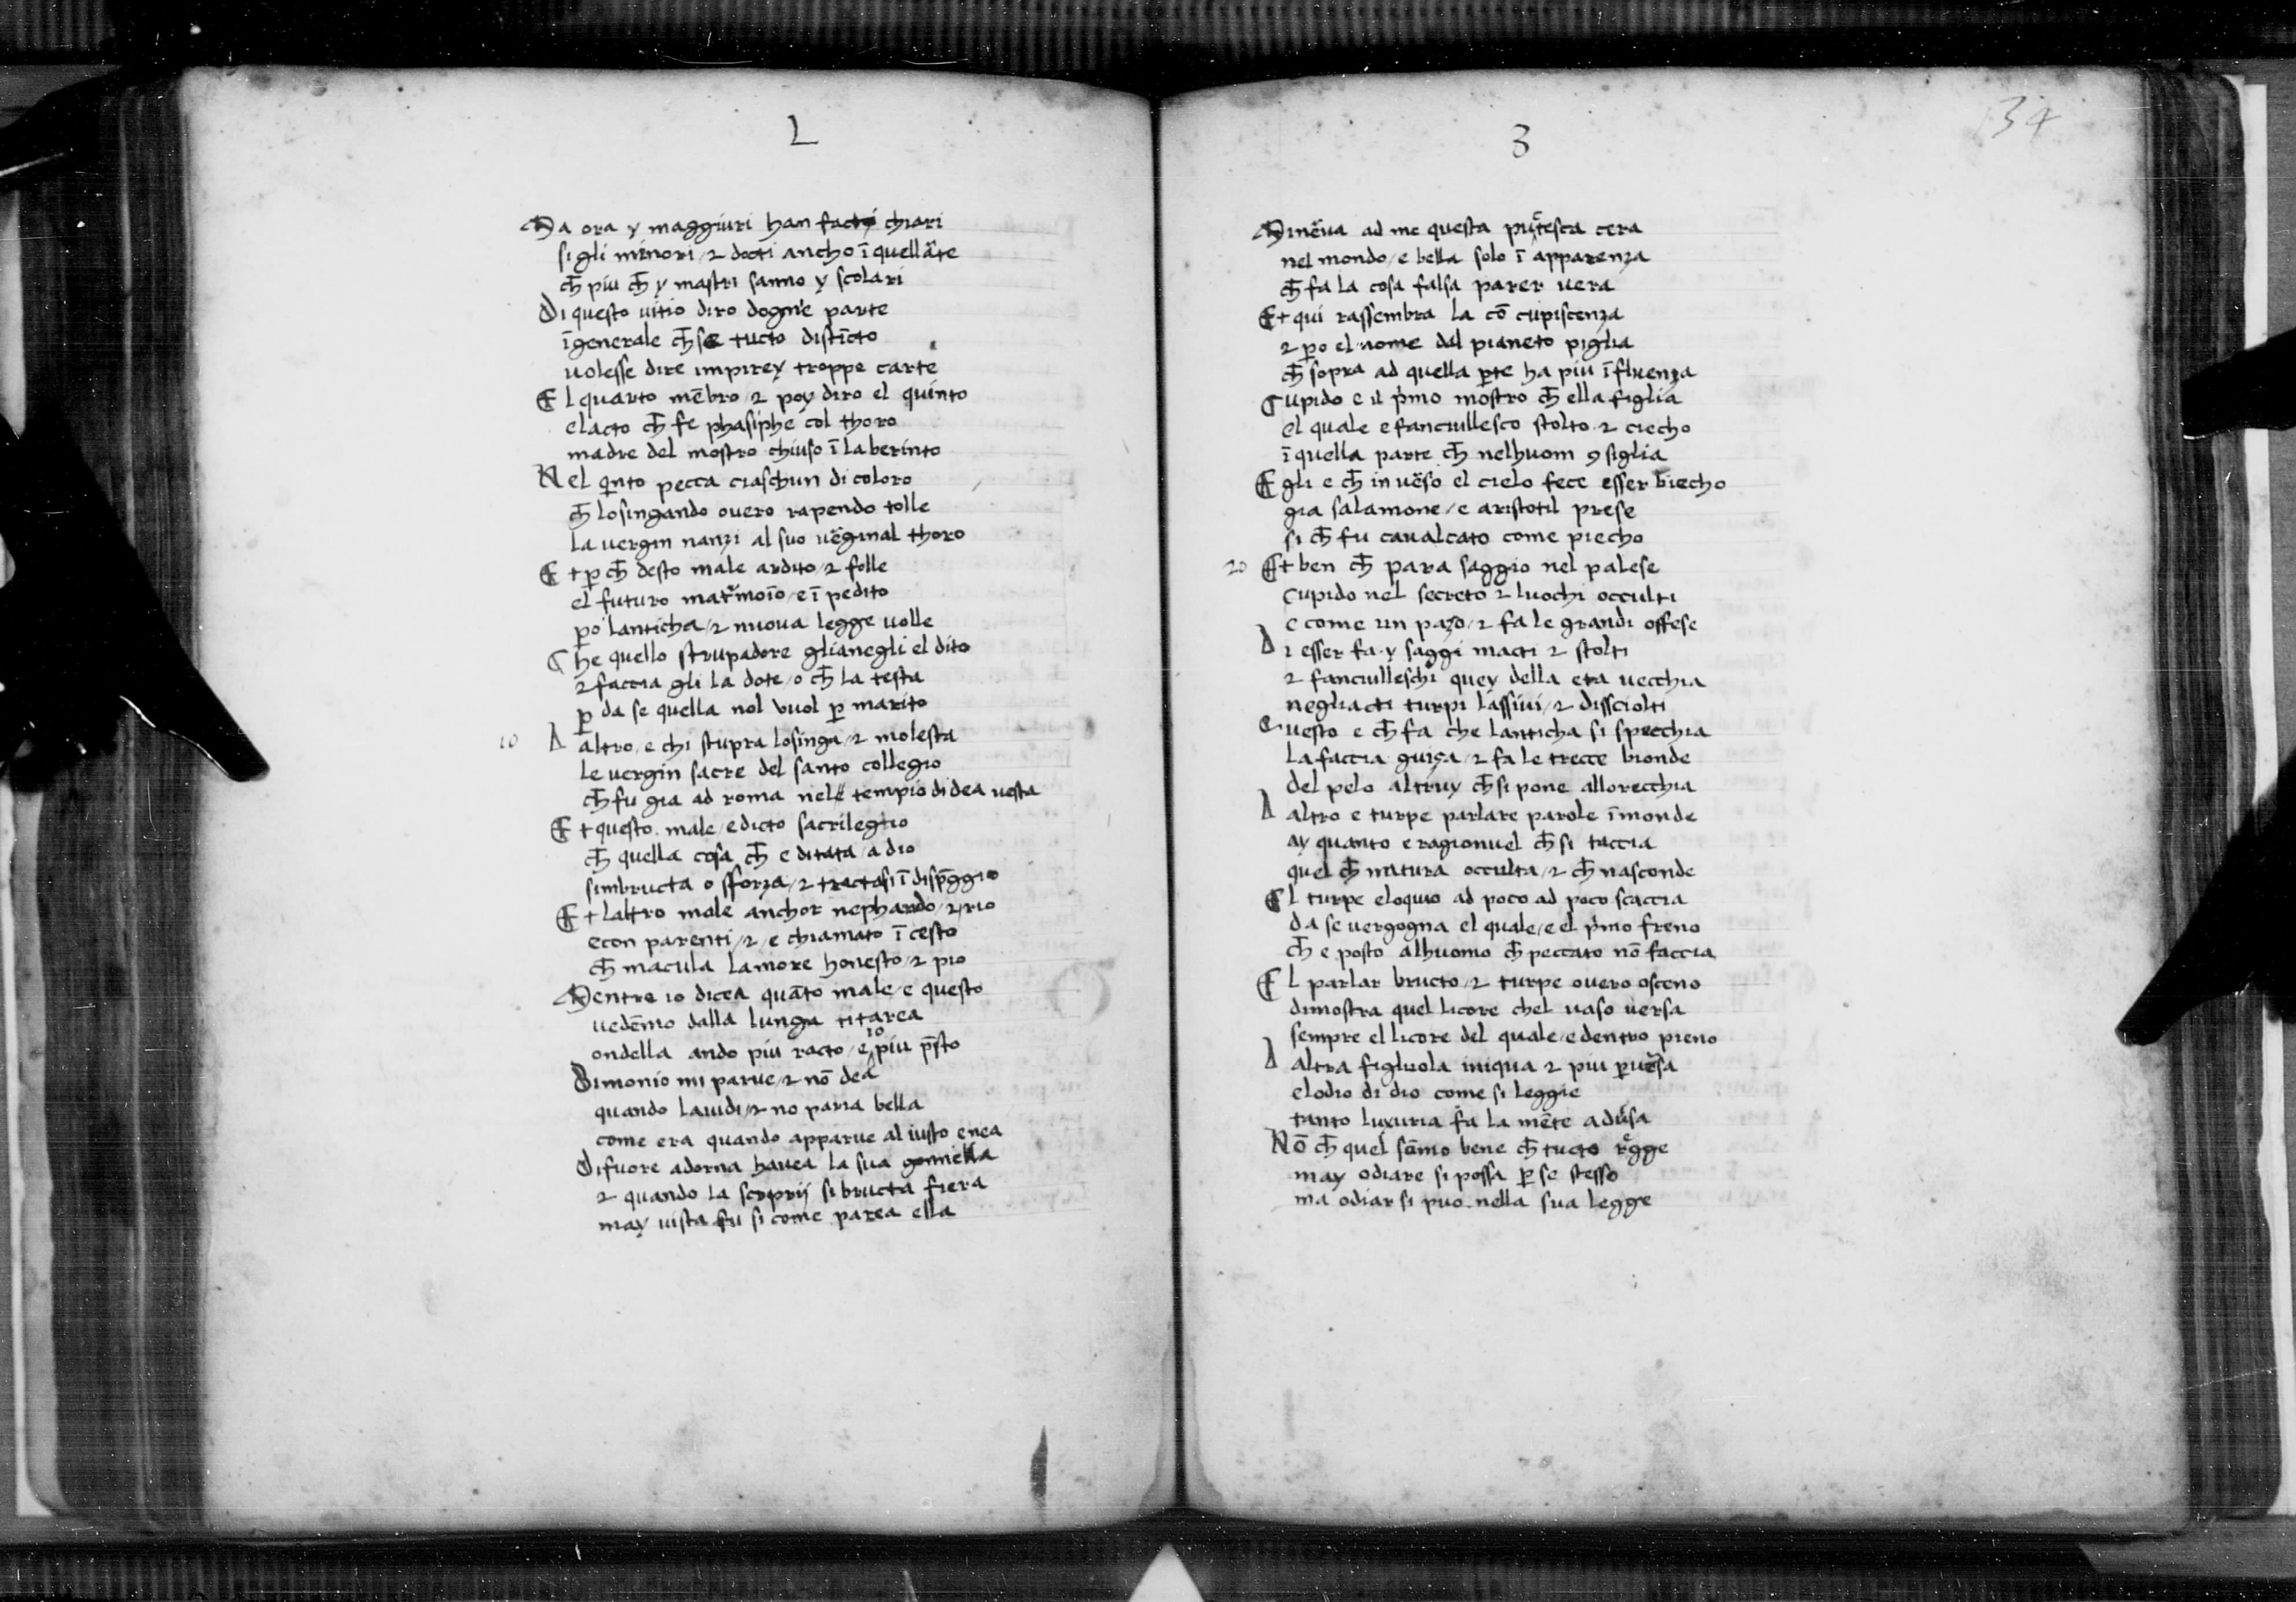 L
Ma ora y maggiuri han factj chiari
si gli mẽnori / ⁊ docti ancho ĩ quellãte
ch̄ piu ch̄ y mastri sanno y scolari
Di questo uitio diro dogn'e parte
ĩ generale ch̄ se tucto distĩcto
uolesse dire impirey troppe carte
El quarto mẽbro / ⁊ poy diro el quinto
e lacto ch̄ fe phasiphe col thoro
madre del mostro chiuso ĩ laberinto
Nel qinto pecca ciaschun di coloro
ch̄ losingando ouero rapendo tolle
la uergin nanzi al suo ũginal thoro
Et ꝑ ch̄ desto male ardito / ⁊ folle
el futuro matˀmoĩo / e ĩ pedito
ꝑo lanticha / ⁊ nuoua legge uolle
Che quello strupadore glianegli el dito
⁊ faccia gli la dote / o ch̄ la testa
ꝑ da se quella nol vuol ꝑ marito
10
Laltro / e chi stupra losinga / ⁊ molesta
le uergin sacre del santo collegio
ch̄ fu gia ad roma nele tempio di dea uesta
Et questo male / e dicto sacrilegio
ch̄ quella cosa ch̄ e ditata / a dio
simbructa o sforza / ⁊ tractasi ĩ disp̄ggio
Et laltro male anchor nephando / ⁊ rio
e con parenti / ⁊ / e chiamato ĩ cesto
ch̄ macula lamore honesto / ⁊ pio
Mentre io dicea quãto male / e questo
uedẽmo dalla lunga citarea
ondella ando piu racto / e io piu p̄sto
Dimonio mi parue / ⁊ nõ dea
quando lauidi / ⁊ no paria bella
come era quando apparue al iusto enea
Di fuore adorna hauea la sua gonnella
⁊ quando la scoprij si bructa fiera
may uista fu si come parea ella
3
34
Mineũa ad me questa putˀesca cera
nel mondo / e bella solo ĩ apparenza
ch̄ fa la cosa falsa parer uera
Et qui rassembra la cõ cupiscenza
⁊ ꝑo el nome dal pianeto piglia
ch̄ sopra ad quella ꝑte ha piu ĩfluenza
Cupido e il p̓mo mostro ch̄ ella figlia
el quale e fanciullesco stolto ⁊ ciecho
ĩ quella parte ch̄ nelhuom ꝯ siglia
Egli e ch̄ in uẽso el cielo fece esser biecho
gia salamone / e aristotil prese
si ch̄ fu caualcato come piecho
20
Et ben ch̄ para saggio nel palese
cupido nel secreto ⁊ luochi occulti
e come un pazo / ⁊ fa le grandi offese
Di esser fa y saggi macti ⁊ stolti
⁊ fanciulleschi quey della eta uecchia
negliacti turpi lassiui / ⁊ dissciolti
Questo e ch̄ fa che lanticha si specchia
la faccia guiza / ⁊ fa le trecce bionde
del pelo altruy ch̄ si pone allorecchia
Laltro e turpe parlare parole ĩmonde
ay quanto e ragionuel ch̄ si taccia
quel ch̄ natura occulta / ⁊ ch̄ nasconde
El turpe eloquio ad poco ad poco scaccia
da se uergogna el quale / e el p̓mo freno
ch̄ e posto alhuomo ch̄ peccato nõ faccia
El parlar bructo / ⁊ turpe ouero osceno
dimostra quel licore chel uaso uersa
sempre el licore del quale / e dentro pieno
Laltra figliuola iniqua ⁊ piu ꝑuẽsa
e lodio di dio come si leggie
tanto luxuria fa la mẽte aduˀsa
Nõ ch̄ quel sõmo bene ch̄ tucto rˀgge
may odiare si possa ꝑ se stesso
ma odiar si puo nella sua legge